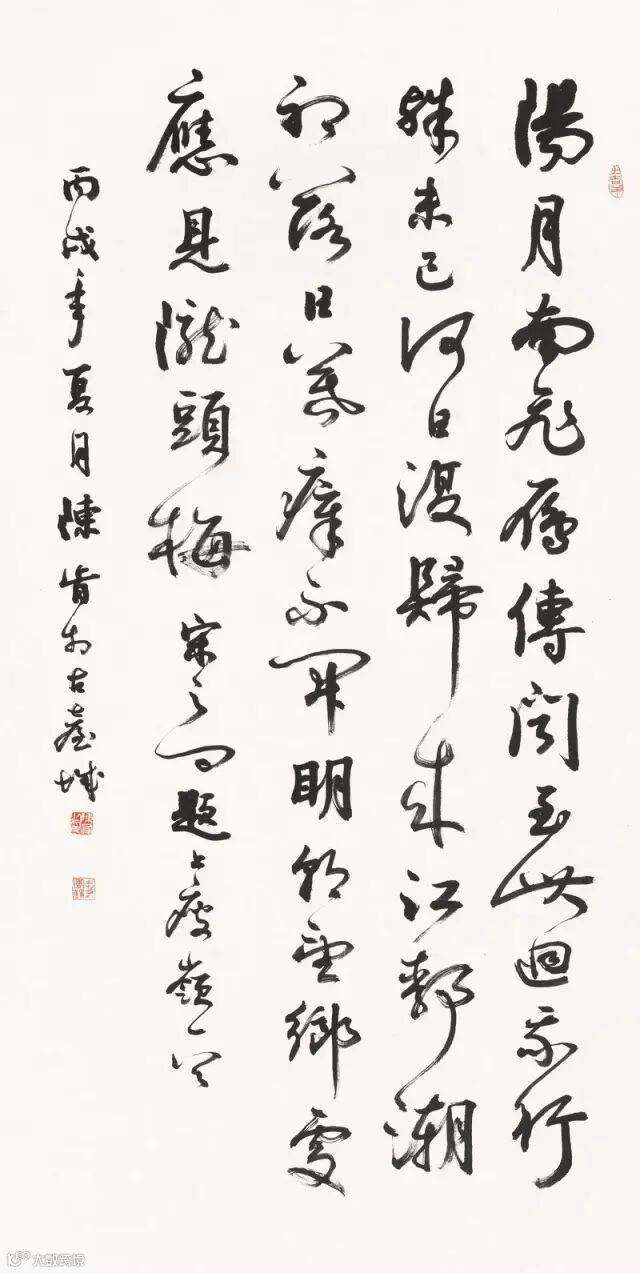 陽月南飛雁傳聞至此迴我行
殊未已何日復歸來江静潮
初落日瘴不開明朝望鄉處
應見隴頭梅 宋之問題大庾嶺一首
丙戌年夏月陳肯於古臺城
大数跨境